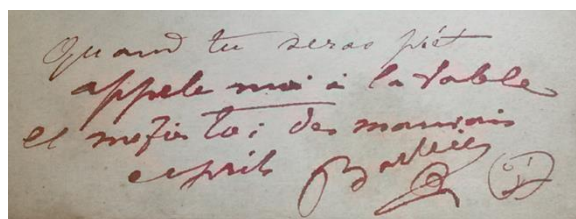 Quand tu seras prêt
appele moi à la table
et mefie toi des mauvais
esprits